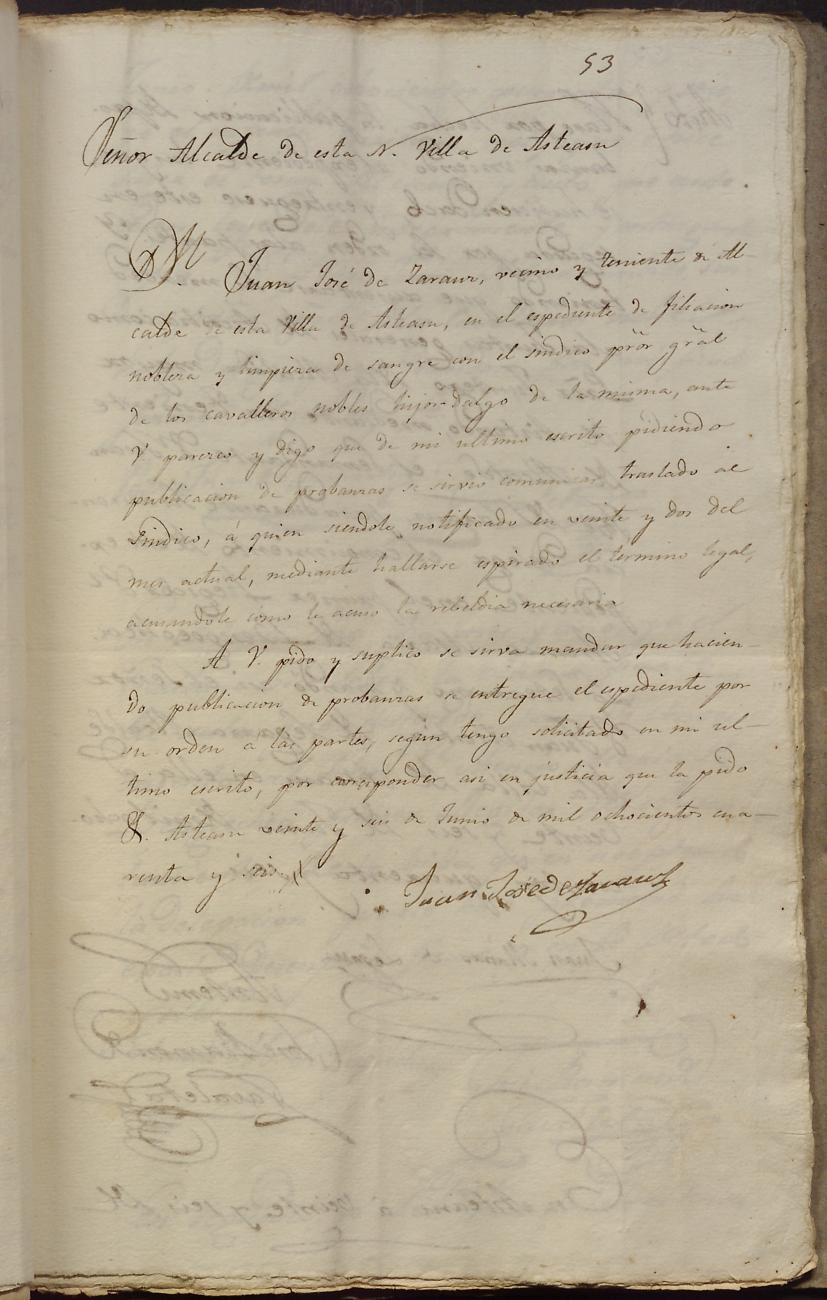 53
Señor Alcalde de esta N. Villa de Asteasu
Dn. Juan José de Zarauz, vecino y teniente de Al-
calde de esta Villa de Asteasu, en el espediente de filiacion
nobleza y limpieza de sangre con el sindico pror. gral
de los cavalleros nobles hijos-dalgo de la misma, ante
V parezco y digo que de mi ultimo escrito pidiendo
publicacion de probanzas se sirvió comunicar traslado al
Sindico, á quien siendole notificado en veinte y dos del
mes actual, mediante hallarse espirado el término legal,
acusandole como le acuso la rebeldia necesaria
A V. pido y suplico se sirva mandar que hacien-
do publicacion de probanzas se entregue el espediente por
su orden a las partes, segun tengo solicitado en mi ul-
timo escrito, por corresponder asi en justicia que la pido
&. Asteasu veinte y seis de Junio de mil ochocientos cua-
renta y seis
Juan José de Zarauz